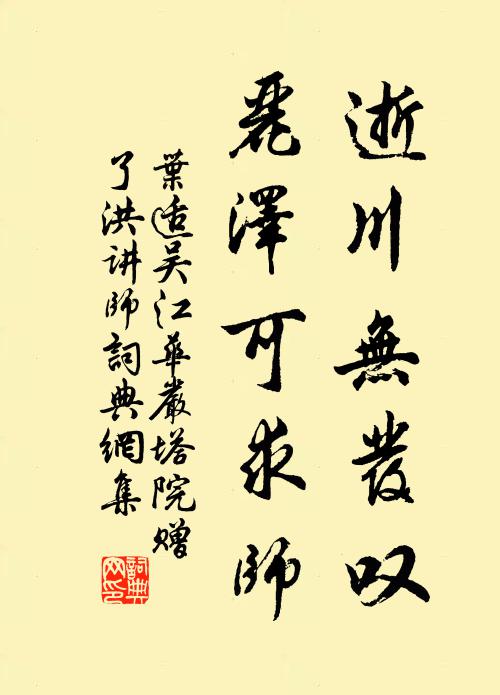 逝川無發叹
麗澤可求師
葉适吴江華嚴塔院赠
了洪讲師詞典網集
詞典
网印